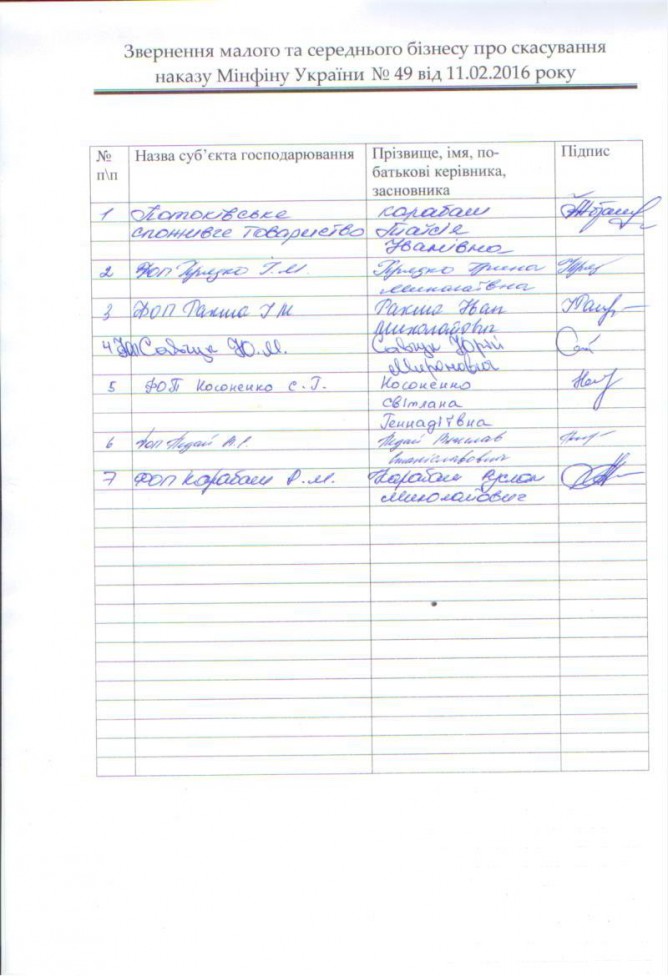 Звернення малого та середнього бізнесу про скасування
наказу Мінфіну України № 49 від 11.02.2016 року
№ п\п Назва суб’єкта господарювання Прізвище, імя, по-батькові керівника, засновника Підпис
1 Потоківське карабаш
споживче товариство Таїсія
Іванівна
2 ФОП І.М. Ірина
Миколаївна
3 ФОП Ракша І М Ракша Іван
Миколайович
4 Савчук Ю.М. Савчук Юрій
Миронович
5 ФОП Косоненко С.Г. Косоненко
Світлана
Геннадіївна
6 ФОП
Станіславович
7 ФОП Карабаш Р.М. Карабаш Руслан
Миколайович